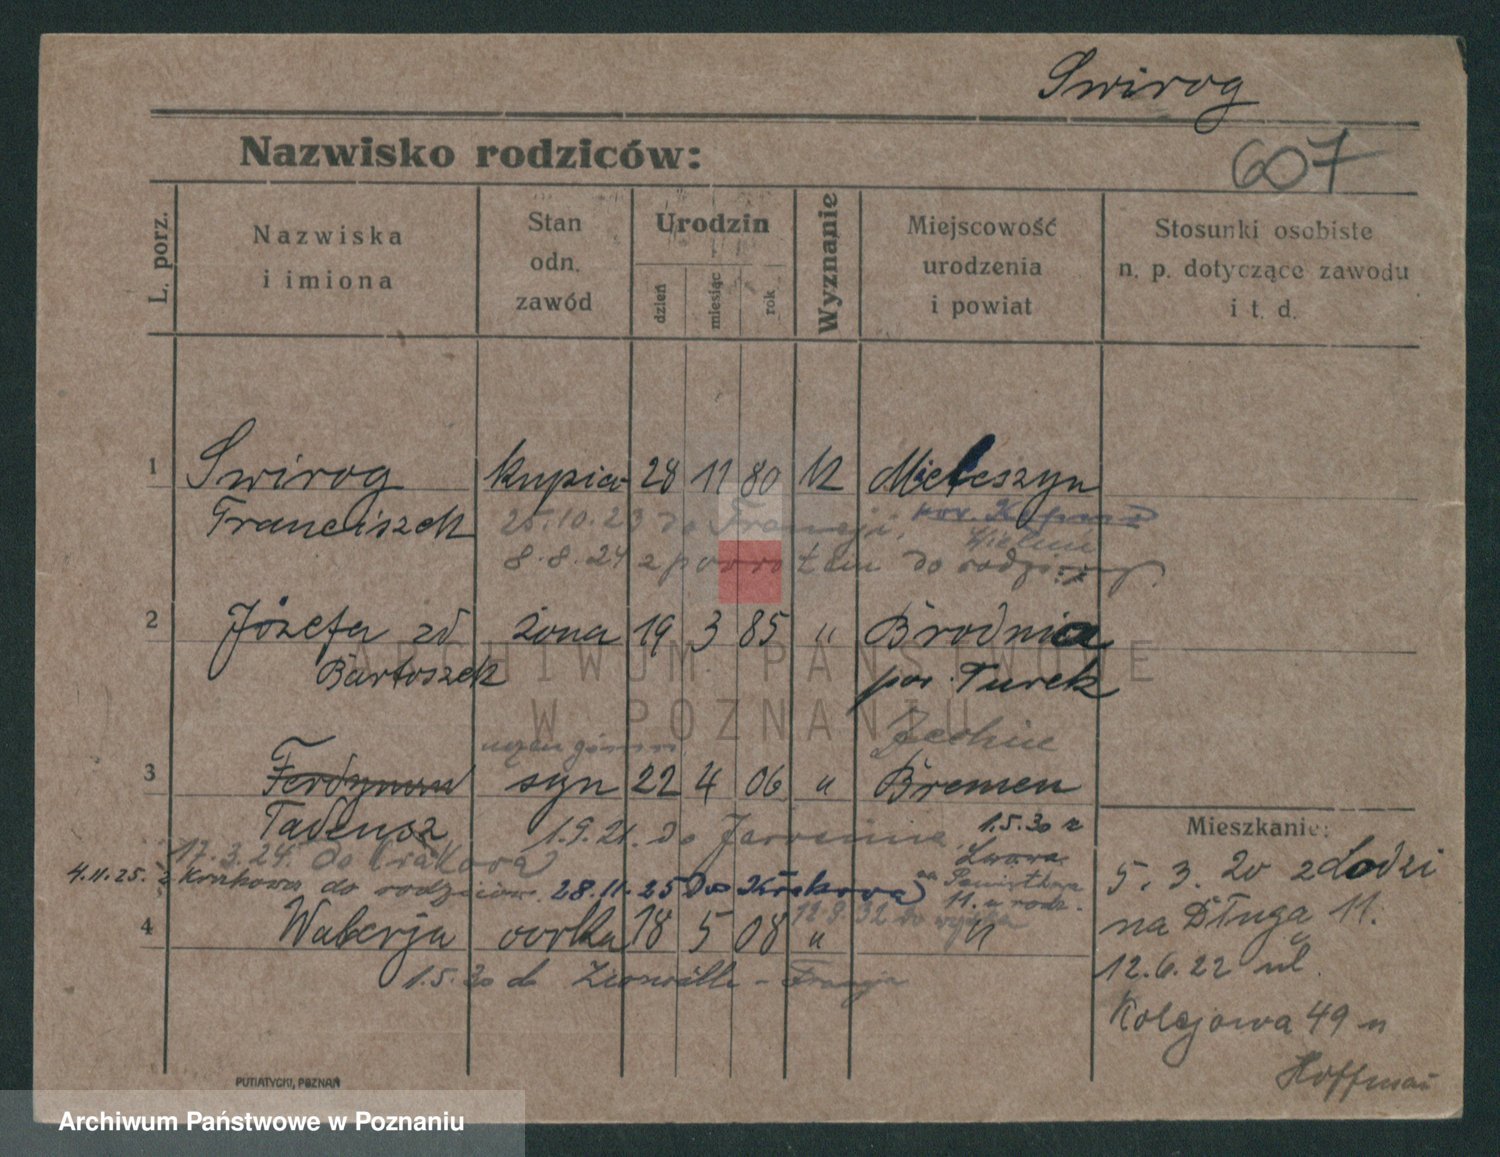 Swirog
607
Nazwisko rodziców:
L. porz.
Nazwiska
i imiona
Stan
odn.
zawód
Urodzin
dzień
miesiąc
rok
Wyznanie
Miejscowość
urodzenia
i powiat
Stosunki osobiste
n. p. dotyczące zawodu
i t. d.
1 Swirog kupiec 28 11 80 K Mieleszyn
Franciszek 25.10.23 do Francji, pow.
Wieluń
8.8.24 z powrotem do rodziny
2 Józefa zd żona 19 3 85 " Brodnia
Bartoszek pow. Turek
uczeń gimn
3 Ferdynand syn 22 4 06 " Bremen
Tadeusz 1.9.21. do Jarocina 1.5.30 z
17.3.24. do Krakowa Lwowa
4.11.25. z Krakowa do rodziców. 28.11.25 do Krakowa na
11. u rodz.
12.9.32 do
4 Waleria córka 18 5 08 " "
1.5.30 do - Francja
Mieszkanie:
5.3.20 z Łodzi
na Długą 11.
12.6.22 ul.
Kolejowa 49 u
Hoffman
PUTIATYCKI, POZNAŃ
ARCHIWUM PAŃSTWOWE
W POZNANIU
Archiwum Państwowe w Poznaniu